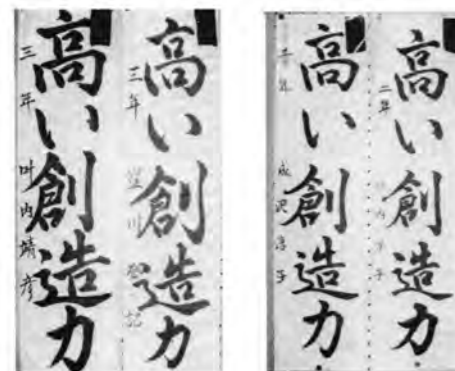 高い創造力
二年
高い創造力
二年 成沢 子
高い創造力
三年
高い創造力
三年 叶内靖彦